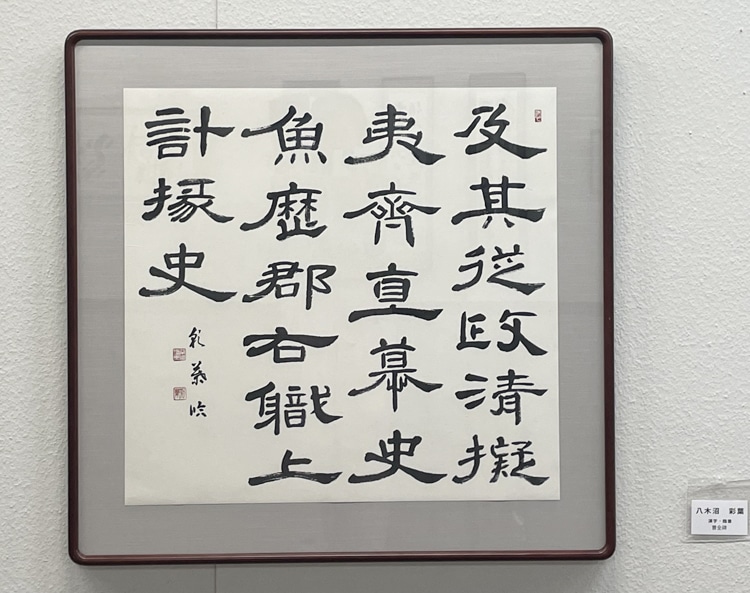 及其從政清擬
夷齊直慕史
魚歷郡右職上
計掾史
彩葉臨
八木沼 彩葉
漢字・臨書
曹全碑